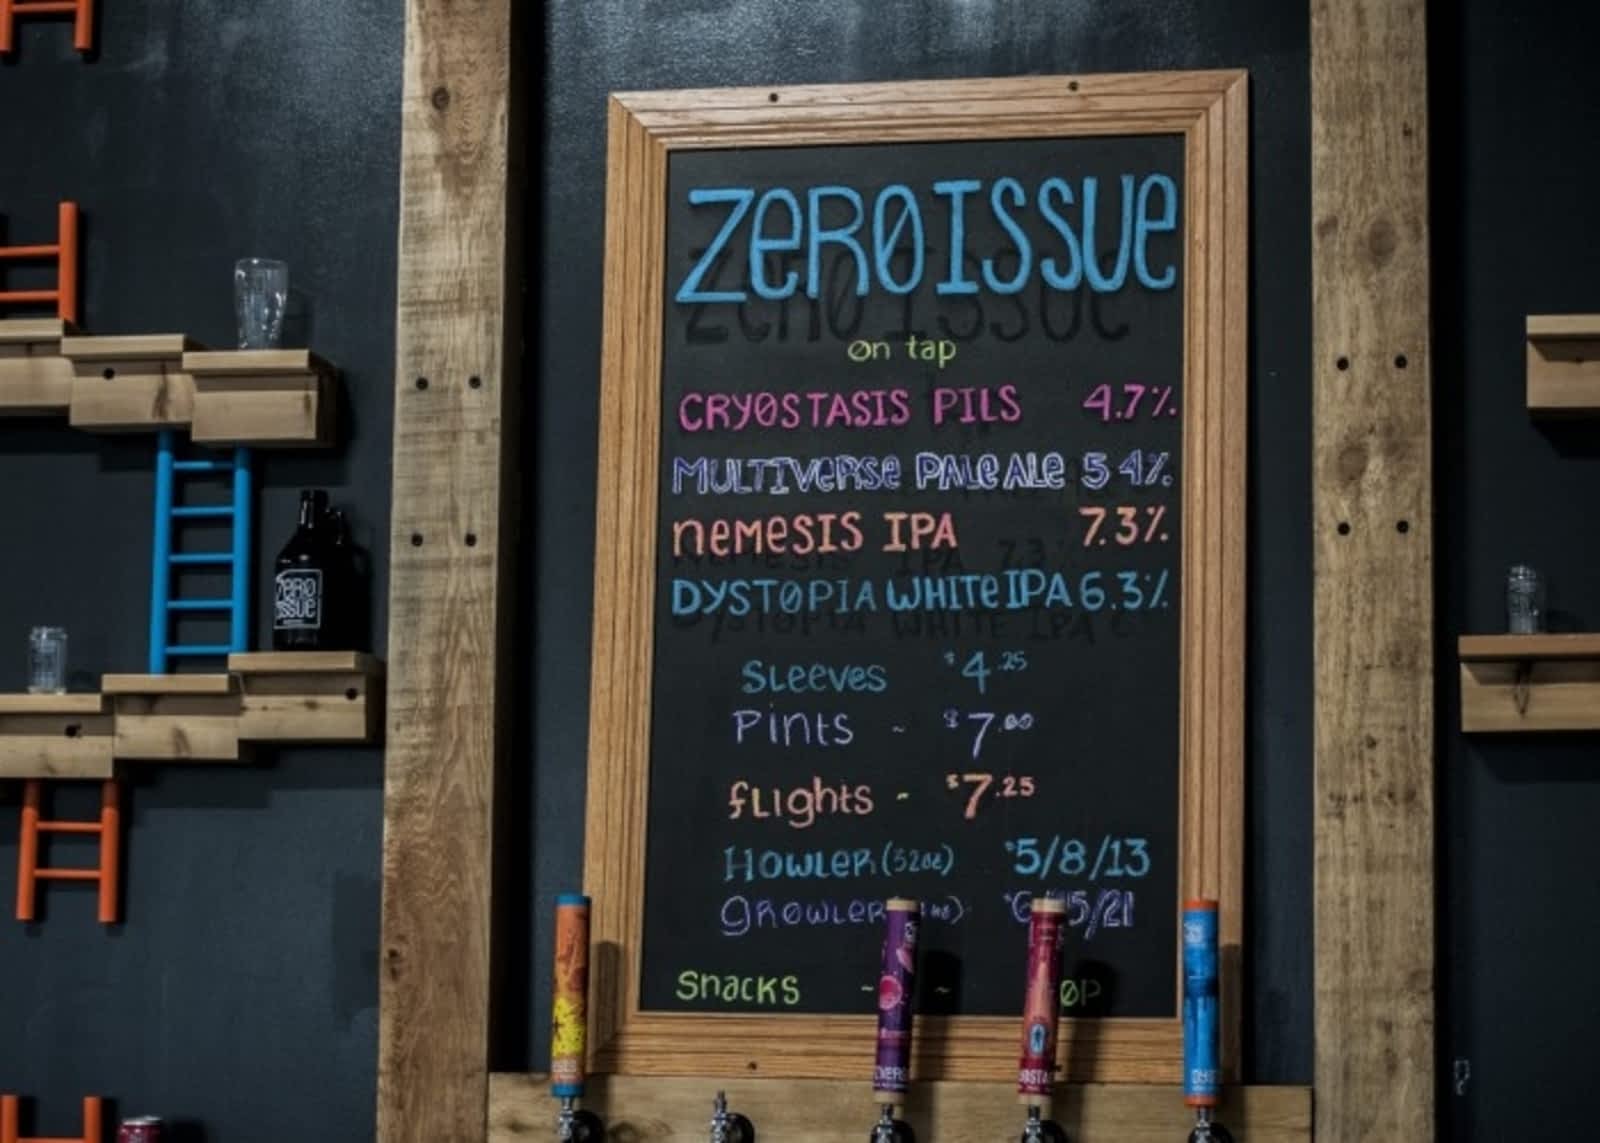 ZERØISSUE
øn tap
CRYØSTASIS PILS 4.7%
MULTIVERSE PALE ALE 5.4%
NEMESIS IPA 7.3%
DYSTØPIA WHITE IPA 6.3%
SLEEVES $4.25
Pints - $7.00
flights - $7.25
HOWLER (32oz) $5/8/13
GRØWLER /21
Snacks ~ ~
ZERO
ISSUE